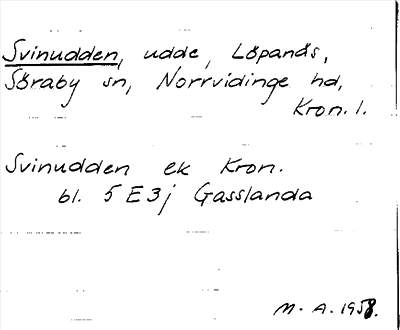 Svinudden, udde, Löpanäs,
Söraby sn, Norrvidinge hd,
Kron. l.
Svinudden ek Kron.
bl. 5E3j Gasslanda
M. A. 1958.